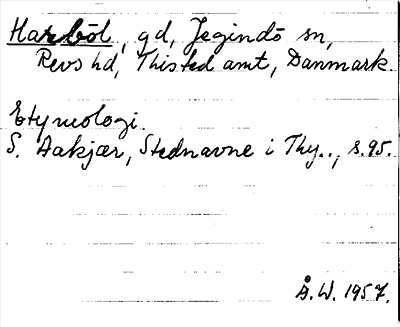 Harböl, gd, Jegindö sn,
Revs hd, Thisted amt, Danmark.
Etymologi.
S. Aakjær, Stednavne i Thy.., s.95.
Å.W. 1957.